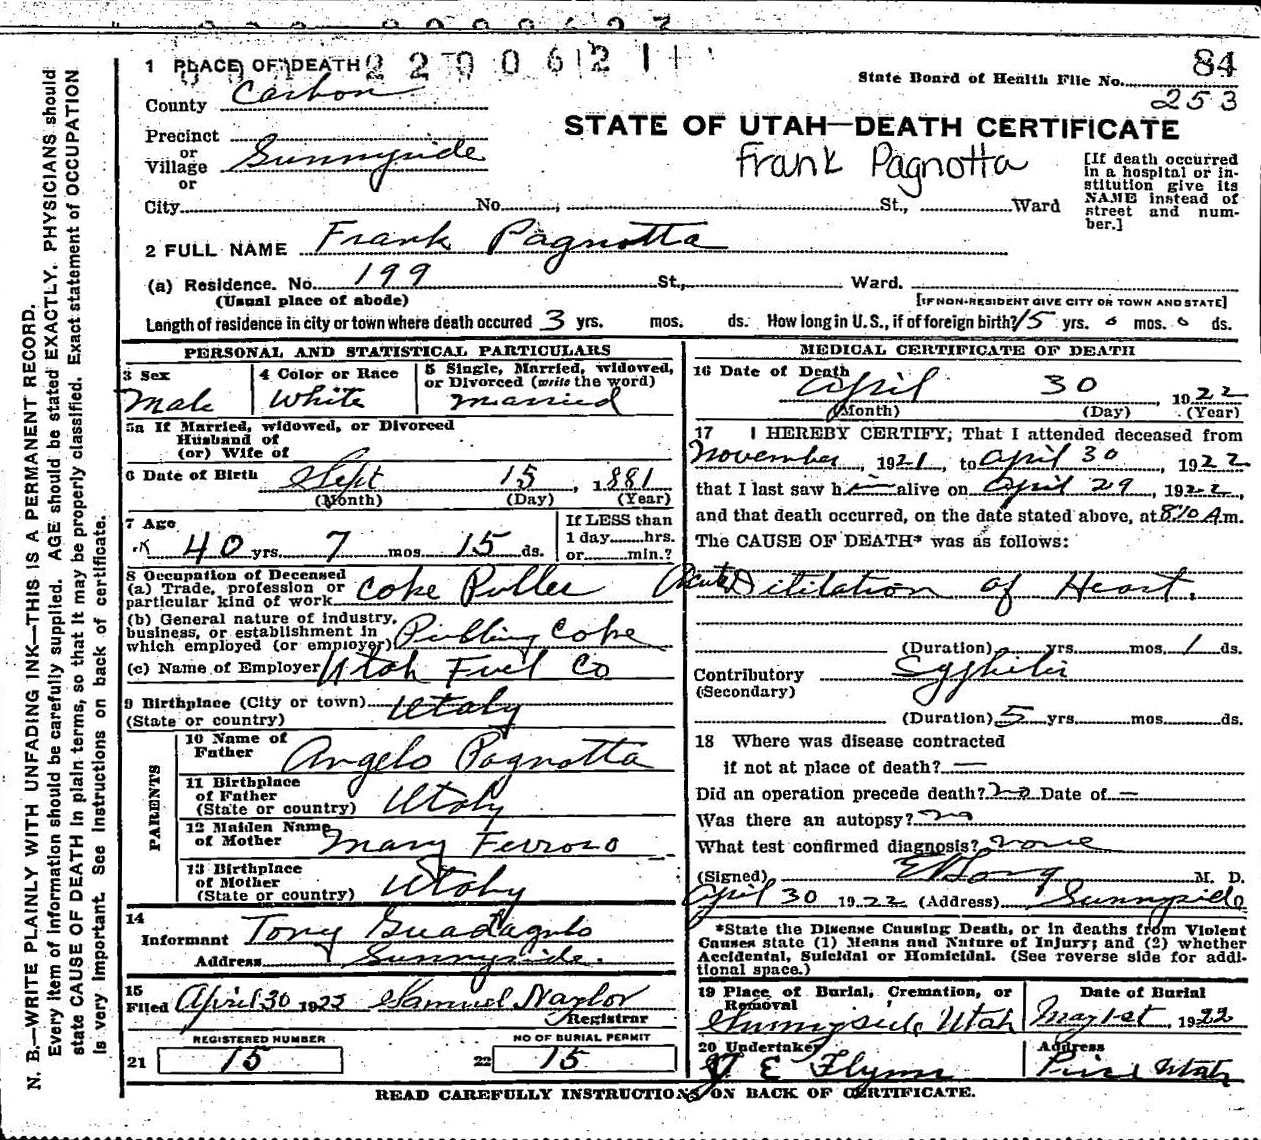 2290621
1 PLACE OF DEATH
84
State Board of Health File No.
253
County Carbon
STATE OF UTAH—DEATH CERTIFICATE
Precinct
or
Village Sunnyside
or
Frank Pagnotta
[If death occurred in a hospital or institution give its NAME instead of street and number.]
City No. ; St., Ward
2 FULL NAME Frank Pagnotta
(a) Residence. No. 199 St., Ward.
(Usual place of abode)
[IF NON-RESIDENT GIVE CITY OR TOWN AND STATE]
Length of residence in city or town where death occured 3 yrs. mos. ds. How long in U.S., if of foreign birth? 15 yrs. 0 mos. 0 ds.
PERSONAL AND STATISTICAL PARTICULARS
3 Sex
Male
4 Color or Race
White
5 Single, Married, widowed,
or Divorced (write the word)
Married
5a If Married, widowed, or Divorced
Husband of
(or) Wife of
6 Date of Birth Sept 15, 1881
(Month) (Day) (Year)
7 Age
40 yrs. 7 mos. 15 ds.
If LESS than
1 day......hrs.
or......min.?
8 Occupation of Deceased
(a) Trade, profession or
particular kind of work Coke Puller
(b) General nature of industry,
business, or establishment in
which employed (or employer) Pulling Coke
(c) Name of Employer Utah Fuel Co
9 Birthplace (City or town) Utaly
(State or country)
PARENTS
10 Name of
Father Angelo Pagnotta
11 Birthplace
of Father
(State or country) Utaly
12 Maiden Name
of Mother Mary Ferroso
13 Birthplace
of Mother
(State or country) Utaly
14
Informant Tony Guadagnlo
Address Sunnyside.
15
Filed April 30 1922 Samuel Naylor
Registrar
REGISTERED NUMBER
21 15
NO OF BURIAL PERMIT
22 15
MEDICAL CERTIFICATE OF DEATH
16 Date of Death
April 30, 1922
(Month) (Day) (Year)
17 I HEREBY CERTIFY; That I attended deceased from
November, 1921, to April 30, 1922
that I last saw him alive on April 29, 1922,
and that death occurred, on the date stated above, at 8:10 A m.
The CAUSE OF DEATH* was as follows:
Acute Dilitation of Heart.
(Duration) yrs. mos. 1 ds.
Contributory Syphilis
(Secondary)
(Duration) 5 yrs. mos. ds.
18 Where was disease contracted
if not at place of death? —
Did an operation precede death? no Date of —
Was there an autopsy? no
What test confirmed diagnosis? none
(Signed) M. D.
April 30 1922 (Address) Sunnyside
*State the Disease Causing Death, or in deaths from Violent
Causes state (1) Means and Nature of Injury; and (2) whether
Accidental, Suicidal or Homicidal. (See reverse side for addi-
tional space.)
19 Place of Burial, Cremation, or
Removal
Sunnyside Utah
Date of Burial
May 1st, 1922
20 Undertaker
J E Flynn
Address
Price Utah
READ CAREFULLY INSTRUCTIONS ON BACK OF CERTIFICATE.
N. B.—WRITE PLAINLY WITH UNFADING INK—THIS IS A PERMANENT RECORD.
Every item of information should be carefully supplied. AGE should be stated EXACTLY. PHYSICIANS should
state CAUSE OF DEATH in plain terms, so that it may be properly classified. Exact statement of OCCUPATION
is very important. See instructions on back of certificate.